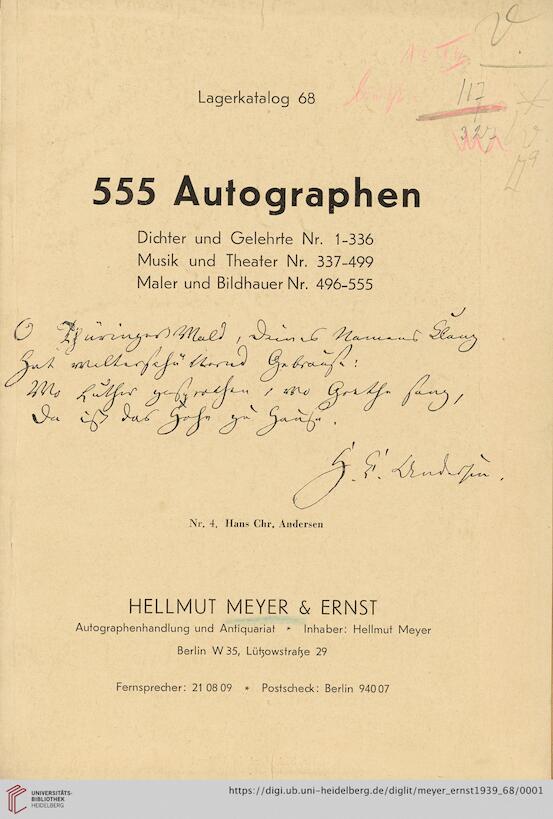 V.
117
327
Lagerkatalog 68
555 Autographen
Dichter und Gelehrte Nr. 1-336
Musik und Theater Nr. 337-499
Maler und Bildhauer Nr. 496-555
O Thüringer Wald, deines Namens Klang
Hat welterschütternd Gebrause:
Wo Luther gesprochen, wo Goethe sang,
Da ist das Hohe zu Hause.
H. C. Andersen.
Nr. 4. Hans Chr. Andersen
HELLMUT MEYER & ERNST
Autographenhandlung und Antiquariat * Inhaber: Hellmut Meyer
Berlin W 35, Lützowstraße 29
Fernsprecher: 21 08 09 * Postscheck: Berlin 940 07
UNIVERSITÄTS-
BIBLIOTHEK
HEIDELBERG
https://digi.ub.uni-heidelberg.de/diglit/meyer_ernst1939_68/0001